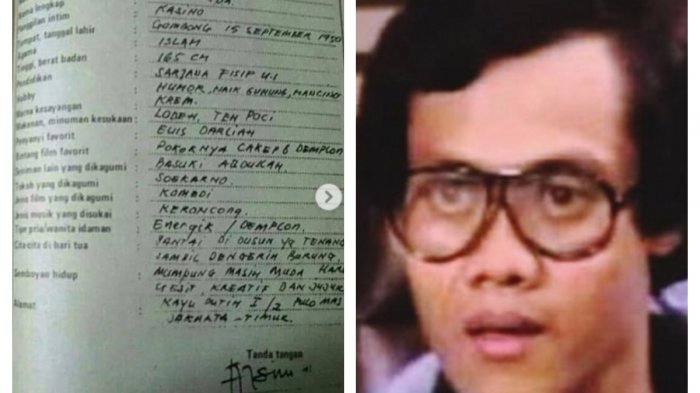 Nama lengkap :
Panggilan intim : KASINO
Tempat, tanggal lahir : GOMBONG 15 SEPTEMBER 1950
Agama : ISLAM
Tinggi, berat badan : 165 CM
Pendidikan : SARJANA FISIP U.I
Hobby : HUMOR, NAIK GUNUNG, MANCING
Warna kesayangan : KREM.
Makanan, minuman kesukaan : LODEH, TEH POCI
Penyanyi favorit : EUIS DARLIAH
Bintang film favorit : POKOKNYA CAKEP & DEMPLON
Seniman lain yang dikagumi : BASUKI ABDULLAH.
Tokoh yang dikagumi : SOEKARNO.
Jenis film yang dikagumi : KOMEDI
Jenis musik yang disukai : KERONCONG.
Tipe pria/wanita idaman : Energik / DEMPLON.
Cita cita di hari tua : SANTAI DI DUSUN yg TENANG
SAMBIL DENGERIN BURUNG.
Semboyan hidup : MUMPUNG MASIH MUDA HARUS
GESIT, KREATIF DAN JUJUR
Alamat : KAYU PUTIH I/2 PULO MAS
JAKARTA - TIMUR.
Tanda tangan